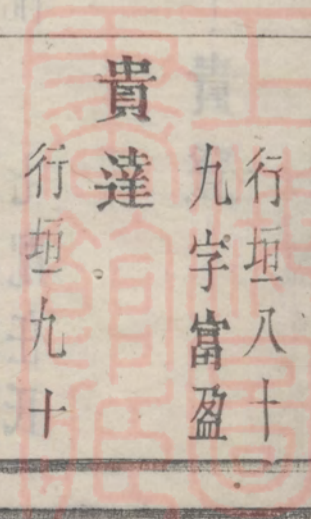 行垣八十
九字富盈
貴達
行垣九十